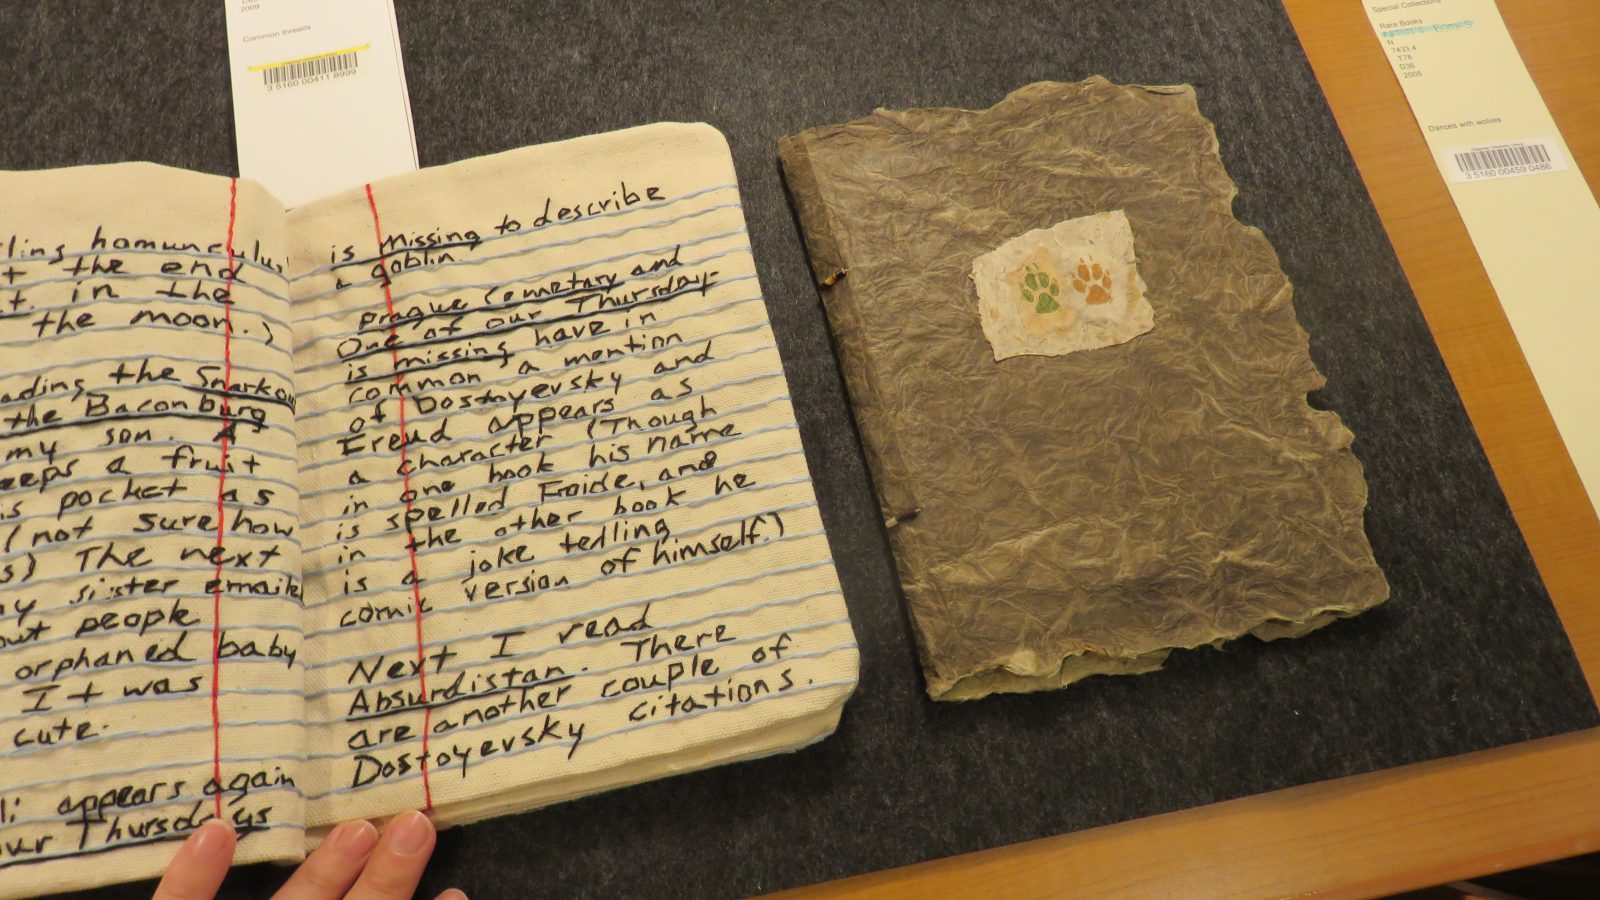 2009
Common threads
3 5160 00411 8999
homunculus
the end
in the
the moon.)
the Snarkou
the Baconburg
my son. A
a fruit
pocket as
(not sure how
The next
sister emailed
people
orphaned baby
It was
cute.
appears again
our Thursdays
is missing to describe
a goblin
Prague Cemetary and
One of our Thursday
is missing have in
common a mention
of Dostoyevsky and
Freud appears as
a character (Though
in one book his name
is spelled Froide, and
in the other book he
is a joke telling
comic version of himself.)
Next I read
Absurdistan. There
are another couple of
Dostoyevsky citations.
Special Collections
Rare Books
ARTIST'S BOOKS
N
7433.4
T78
D36
2005
Dances with wolves
3 5160 00459 0486